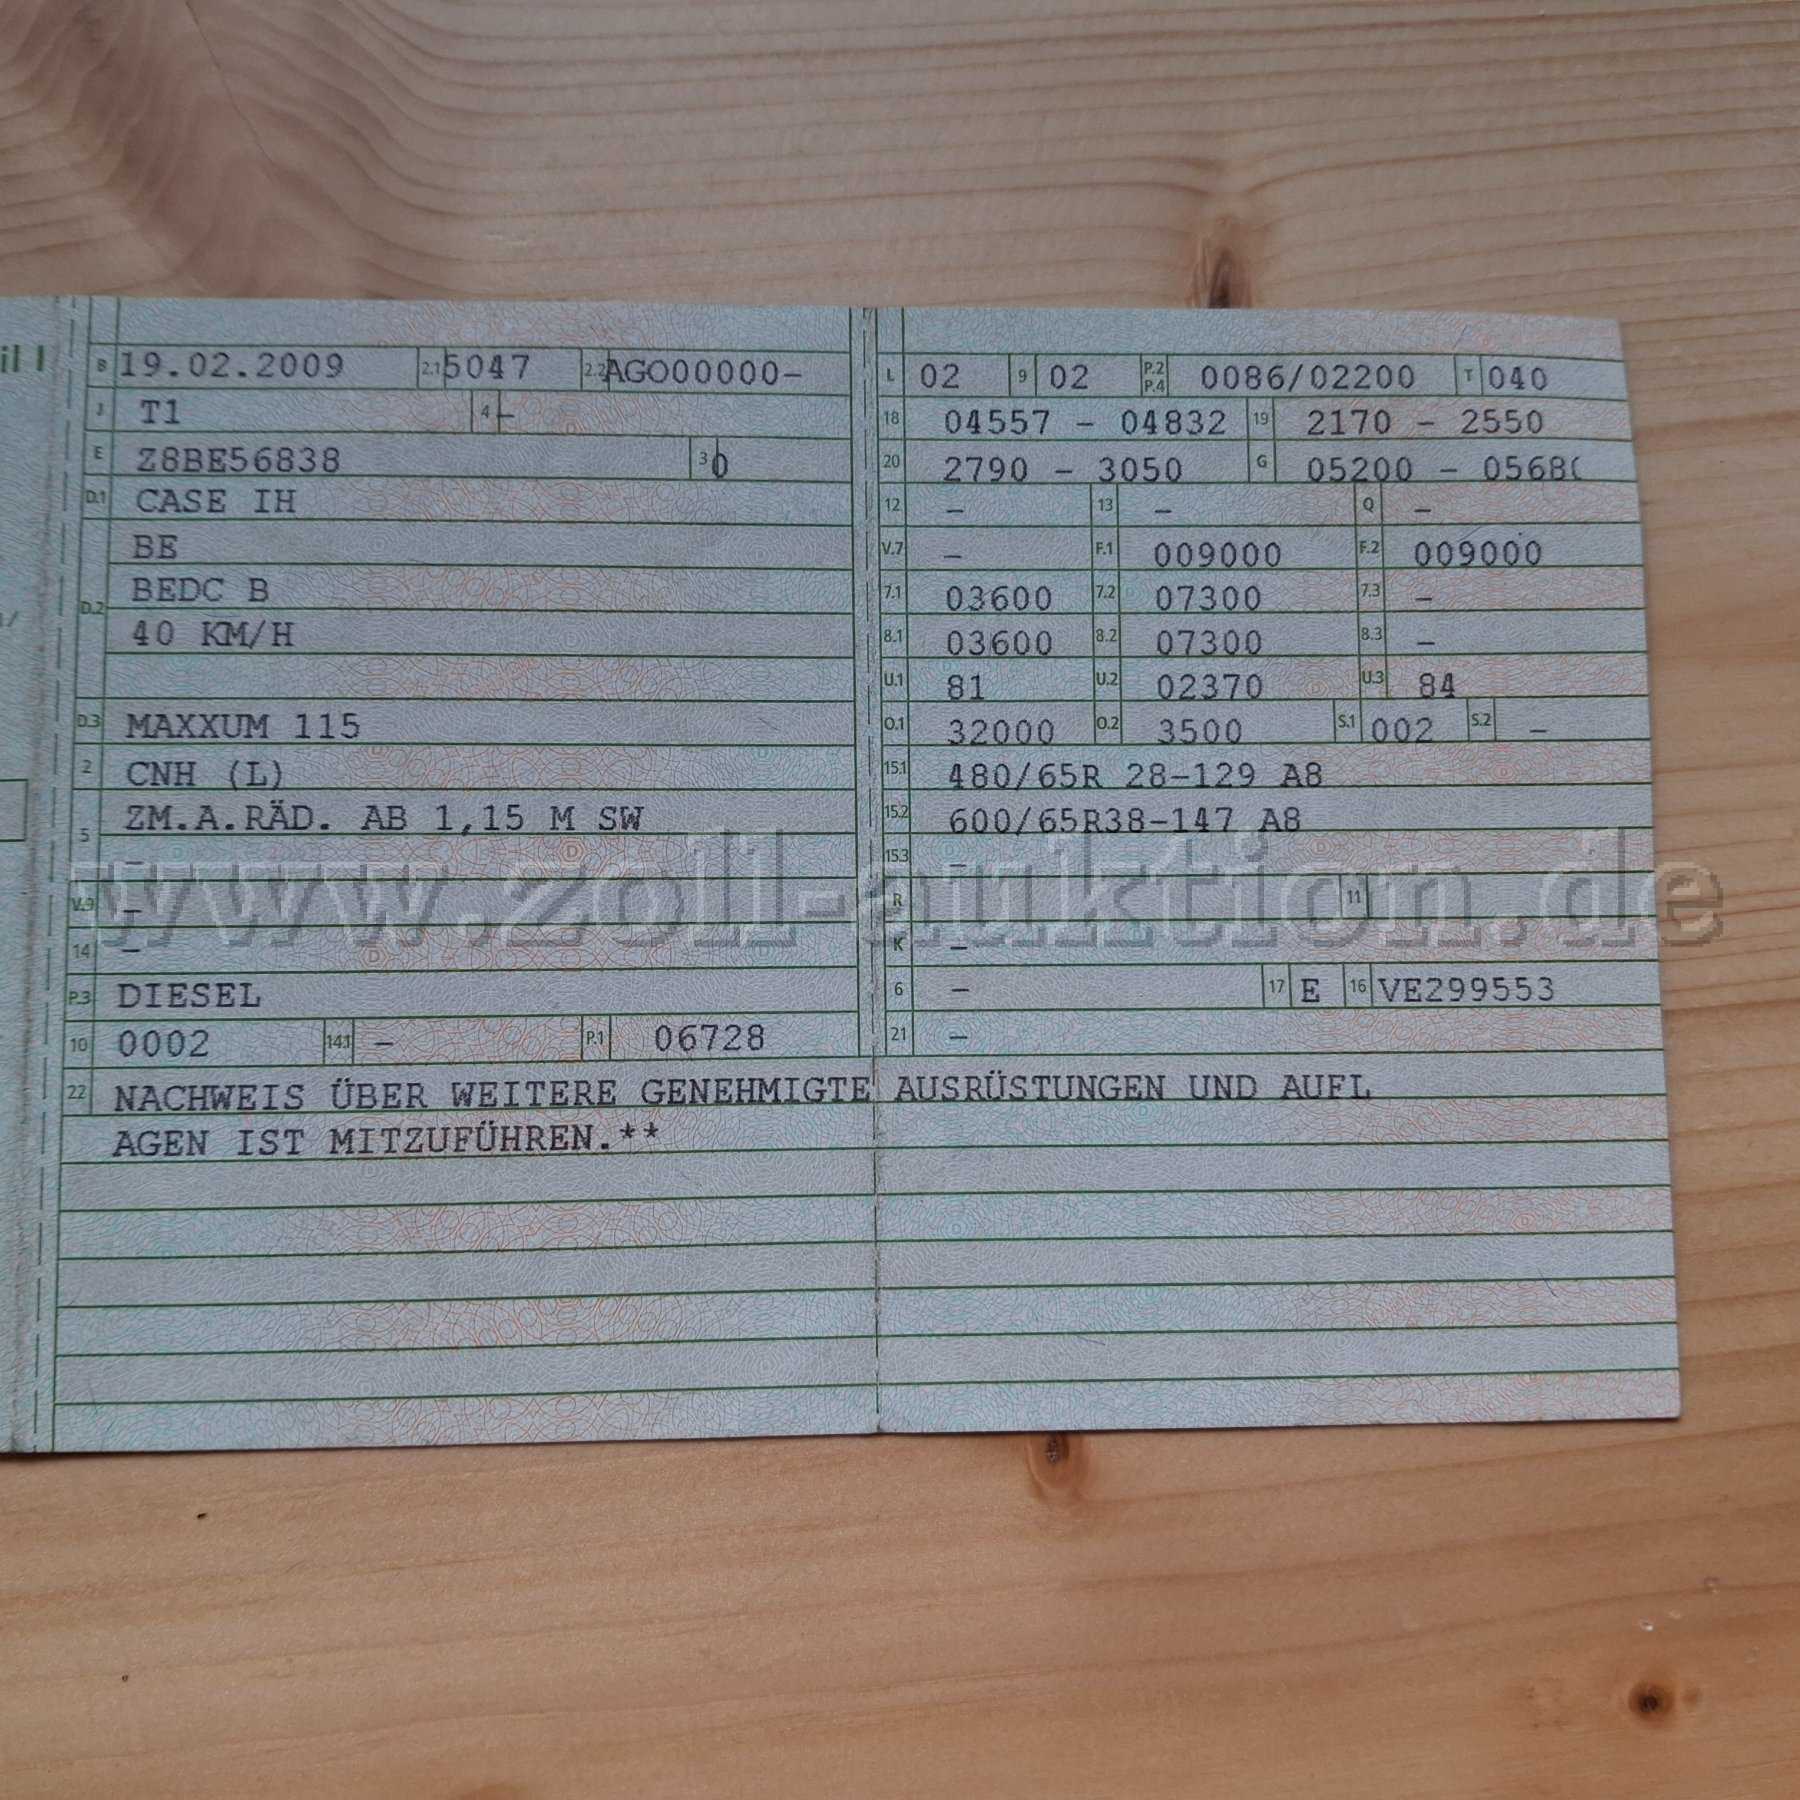 il I
B 19.02.2009 2.1 5047 2.2 AGO00000-
J T1 4 -
E Z8BE56838 3 0
D.1 CASE IH
BE
D.2 BEDC B
40 KM/H
D.3 MAXXUM 115
2 CNH (L)
5 ZM.A.RÄD. AB 1,15 M SW
-
V.9 -
14 -
P.3 DIESEL
10 0002 14.1 - P.1 06728
L 02 9 02 P.2 P.4 0086/02200 T 040
18 04557 - 04832 19 2170 - 2550
20 2790 - 3050 G 05200 - 05680
12 - 13 - Q -
V.7 - F.1 009000 F.2 009000
7.1 03600 7.2 07300 7.3 -
8.1 03600 8.2 07300 8.3 -
U.1 81 U.2 02370 U.3 84
O.1 32000 O.2 3500 S.1 002 S.2 -
15.1 480/65R 28-129 A8
15.2 600/65R38-147 A8
15.3 -
R 11
K -
6 - 17 E 16 VE299553
21 -
22 NACHWEIS ÜBER WEITERE GENEHMIGTE AUSRÜSTUNGEN UND AUFL
AGEN IST MITZUFÜHREN.**
www.zoll-auktion.de